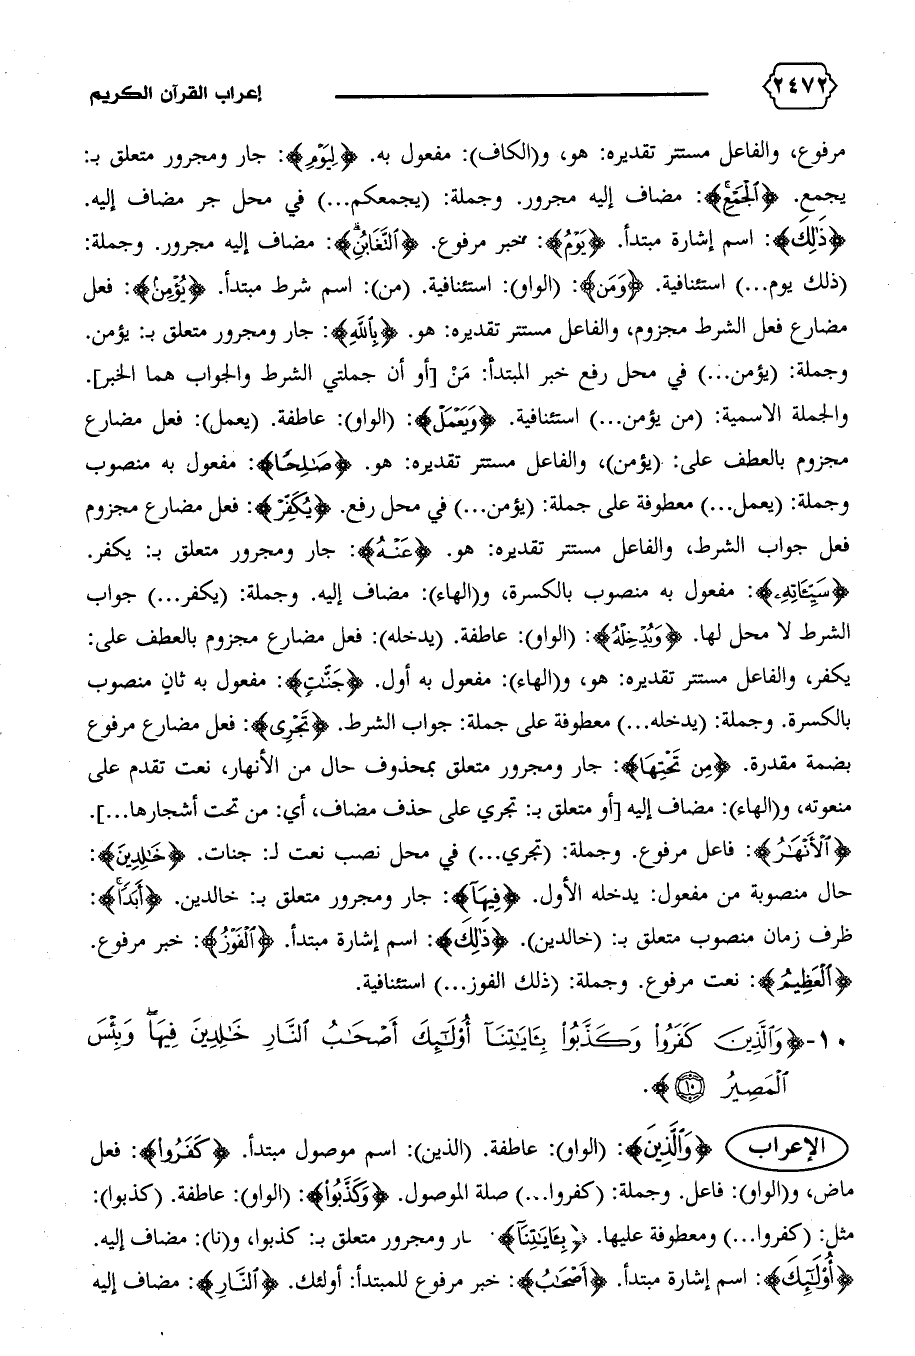 ٢٤٧٢ إعراب القرآن الكريم
مرفوع، والفاعل مستتر تقديره: هو، و(الكاف): مفعول به. ﴿لِيَوْمِ﴾: جار ومجرور متعلق بـ:
يجمع. ﴿ٱلْجَمْعِۖ﴾: مضاف إليه مجرور. وجملة: (يجمعكم...) في محل جر مضاف إليه.
﴿ذَٰلِكَ﴾: اسم إشارة مبتدأ. ﴿يَوْمُ﴾: خبر مرفوع. ﴿ٱلتَّغَابُنِۗ﴾: مضاف إليه مجرور. وجملة:
(ذلك يوم...) استئنافية. ﴿وَمَن﴾: (الواو): استئنافية. (من): اسم شرط مبتدأ. ﴿يُؤْمِنۢ﴾: فعل
مضارع فعل الشرط مجزوم، والفاعل مستتر تقديره: هو. ﴿بِٱللَّهِ﴾: جار ومجرور متعلق بـ: يؤمن.
وجملة: (يؤمن...) في محل رفع خبر المبتدأ: مَنْ [أو أن جملتي الشرط والجواب هما الخبر].
والجملة الاسمية: (من يؤمن...) استئنافية. ﴿وَيَعْمَلْ﴾: (الواو): عاطفة. (يعمل): فعل مضارع
مجزوم بالعطف على: (يؤمن)، والفاعل مستتر تقديره: هو. ﴿صَـٰلِحًا﴾: مفعول به منصوب
وجملة: (يعمل...) معطوفة على جملة: (يؤمن...) في محل رفع. ﴿يُكَفِّرْ﴾: فعل مضارع مجزوم
فعل جواب الشرط، والفاعل مستتر تقديره: هو. ﴿عَنْهُ﴾: جار ومجرور متعلق بـ: يكفر.
﴿سَيِّـَٔاتِهِۦ﴾: مفعول به منصوب بالكسرة، و(الهاء): مضاف إليه. وجملة: (يكفر...) جواب
الشرط لا محل لها. ﴿وَيُدْخِلْهُ﴾: (الواو): عاطفة. (يدخله): فعل مضارع مجزوم بالعطف على:
يكفر، والفاعل مستتر تقديره: هو، و(الهاء): مفعول به أول. ﴿جَنَّـٰتٍ﴾: مفعول به ثانٍ منصوب
بالكسرة. وجملة: (يدخله...) معطوفة على جملة: جواب الشرط. ﴿تَجْرِى﴾: فعل مضارع مرفوع
بضمة مقدرة. ﴿مِن تَحْتِهَا﴾: جار ومجرور متعلق بمحذوف حال من الأنهار، نعت تقدم على
منعوته، و(الهاء): مضاف إليه [أو متعلق بـ: تجري على حذف مضاف، أي: من تحت أشجارها...].
﴿ٱلْأَنْهَـٰرُ﴾: فاعل مرفوع. وجملة: (تجري...) في محل نصب نعت لـ: جنات. ﴿خَـٰلِدِينَ﴾:
حال منصوبة من مفعول: يدخله الأول. ﴿فِيهَآ﴾: جار ومجرور متعلق بـ: خالدين. ﴿أَبَدًاۚ﴾:
ظرف زمان منصوب متعلق بـ: (خالدين). ﴿ذَٰلِكَ﴾: اسم إشارة مبتدأ. ﴿ٱلْفَوْزُ﴾: خبر مرفوع.
﴿ٱلْعَظِيمُ﴾: نعت مرفوع. وجملة: (ذلك الفوز...) استئنافية.
١٠-﴿وَٱلَّذِينَ كَفَرُوا۟ وَكَذَّبُوا۟ بِـَٔايَـٰتِنَآ أُو۟لَـٰٓئِكَ أَصْحَـٰبُ ٱلنَّارِ خَـٰلِدِينَ فِيهَاۖ وَبِئْسَ
ٱلْمَصِيرُ ۝١٠﴾.
الإعراب ﴿وَٱلَّذِينَ﴾: (الواو): عاطفة. (الذين): اسم موصول مبتدأ. ﴿كَفَرُوا۟﴾: فعل
ماض، و(الواو): فاعل. وجملة: (كفروا...) صلة الموصول. ﴿وَكَذَّبُوا۟﴾: (الواو): عاطفة. (كذبوا):
مثل: (كفروا...) ومعطوفة عليها. ﴿بِـَٔايَـٰتِنَآ﴾ ـار ومجرور متعلق بـ: كذبوا، و(نا): مضاف إليه.
﴿أُو۟لَـٰٓئِكَ﴾: اسم إشارة مبتدأ. ﴿أَصْحَـٰبُ﴾: خبر مرفوع للمبتدأ: أولئك. ﴿ٱلنَّارِ﴾: مضاف إليه